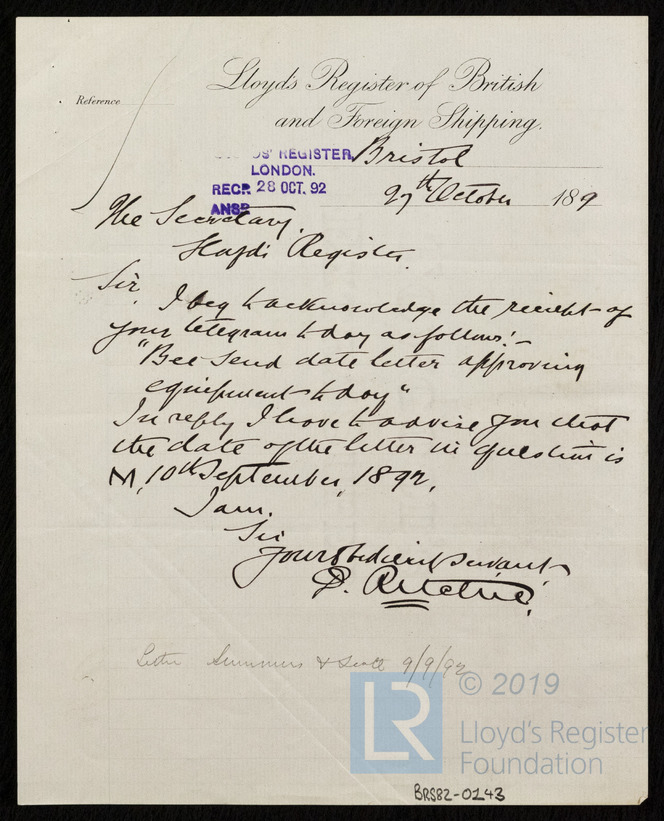 Lloyd's Register of British
and Foreign Shipping.
Reference
Bristol
DS' REGISTER,
LONDON.
RECP. 28 OCT. 92
ANSD
27th October 189
The Secretary,
Lloyds Register.
Sir,
I beg to acknowledge the receipt of
your telegram to day as follows:-
"Bee send date letter approving
equipment to day"
In reply I have to advise you that
the date of the letter in question is
M, 10th September, 1892,
I am,
Sir
Your obedient servant
D. Ritchie.
Letter Summers & Scott 9/9/92
LR © 2019
Lloyd's Register
Foundation
BRS82-0143